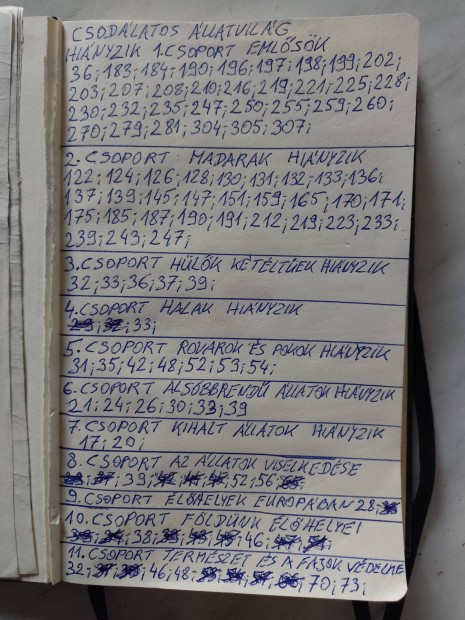 CSODÁLATOS ÁLLATVILÁG
HIÁNYZIK 1.CSOPORT EMLŐSÖK
36;183;184;190;196;197;198;199;202;
203;207;208;210;216;219;221;225;228;
230;232;235;247;250;255;259;260;
270;279;281;304;305;307;
2.CSOPORT MADARAK HIÁNYZIK
122;124;126;128;130;131;132;133;136;
137;139;145;147;151;159;165;170;171;
175;185;187;190;191;212;219;223;233;
239;243;247;
3.CSOPORT HÜLŐK KÉTÉLTŰEK HIÁNYZIK
32;33;36;37;39;
4.CSOPORT HALAK HIÁNYZIK
33;
5.CSOPORT ROVAROK ÉS PÓKOK HIÁNYZIK
31;35;42;48;52;53;54;
6.CSOPORT ALSÓBBRENDŰ ÁLLATOK HIÁNYZIK
21;24;26;30;33;39
7.CSOPORT KIHALT ÁLLATOK HIÁNYZIK
17;20;
8.CSOPORT AZ ÁLLATOK VISELKEDÉSE
39; 52;56;
9.CSOPORT ÉLŐHELYEK EURÓPÁBAN 28;
10.CSOPORT FÖLDÜNK ÉLŐHELYEI
38; 46;
11.CSOPORT TERMÉSZET ÉS A FAJOK VÉDELME
32; 46;48; 70;73;